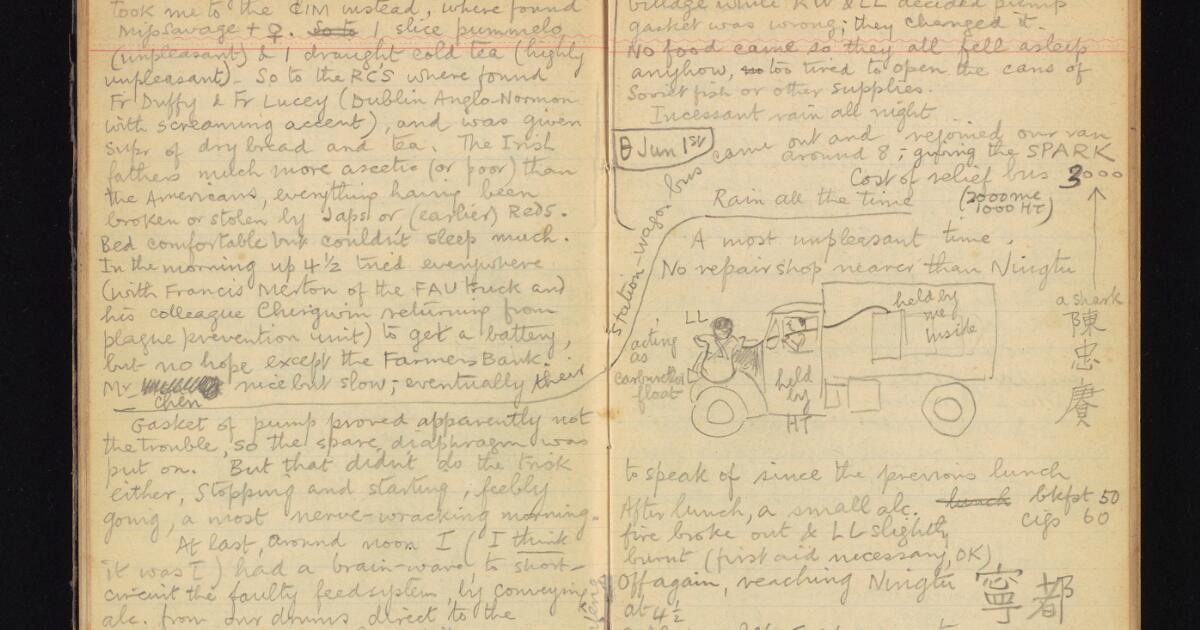 took me to the CIM instead, where found
Miss Savage + ♀. So to 1 slice pummelo
(unpleasant) & 1 draught cold tea (highly
unpleasant). So to the RCS where found
Fr Duffy & Fr Lucey (Dublin Anglo-Norman
with screaming accent), and was given
supr of dry bread and tea. The Irish
fathers much more ascetic (or poor) than
the Americans, everything having been
broken or stolen by Japs or (earlier) Reds.
Bed comfortable but couldn't sleep much.
In the morning up 4½ tried everywhere
(with Francis Merton of the FAU truck and
his colleague Chingwin returning from
plague prevention unit) to get a battery,
but no hope except the Farmers Bank.
Mr Chen nice but slow; eventually their
station-wagon bus
Gasket of pump proved apparently not
the trouble, so the spare diaphragm was
put on. But that didn't do the trick
either, Stopping and starting, feebly
going, a most nerve-wracking morning.
At last, around noon I (I think
it was I) had a brain-wave to short-
circuit the faulty feed system by conveying
alc. from our drums direct to the
village while KW & LL decided pump
gasket was wrong; they changed it.
No food came so they all fell asleep
anyhow, too tired to open the cans of
Soviet fish or other supplies.
Incessant rain all night
Jun 1st
came out and rejoined our van
around 8; giving the SPARK
Cost of relief bus 3000
(2000 me
1000 HT)
Rain all the time
A most unpleasant time.
No repair shop nearer than Ningtu
a shark
陳忠賡
LL
acting
as
carburettor
float
held by
me
inside
held
by
HT
to speak of since the previous lunch
After lunch, a small alc. lunch bkfst 50
cigs 60
fire broke out & LL slightly
burnt (first aid necessary, OK)
Off again, reaching Ningtu 寧都
at 4½